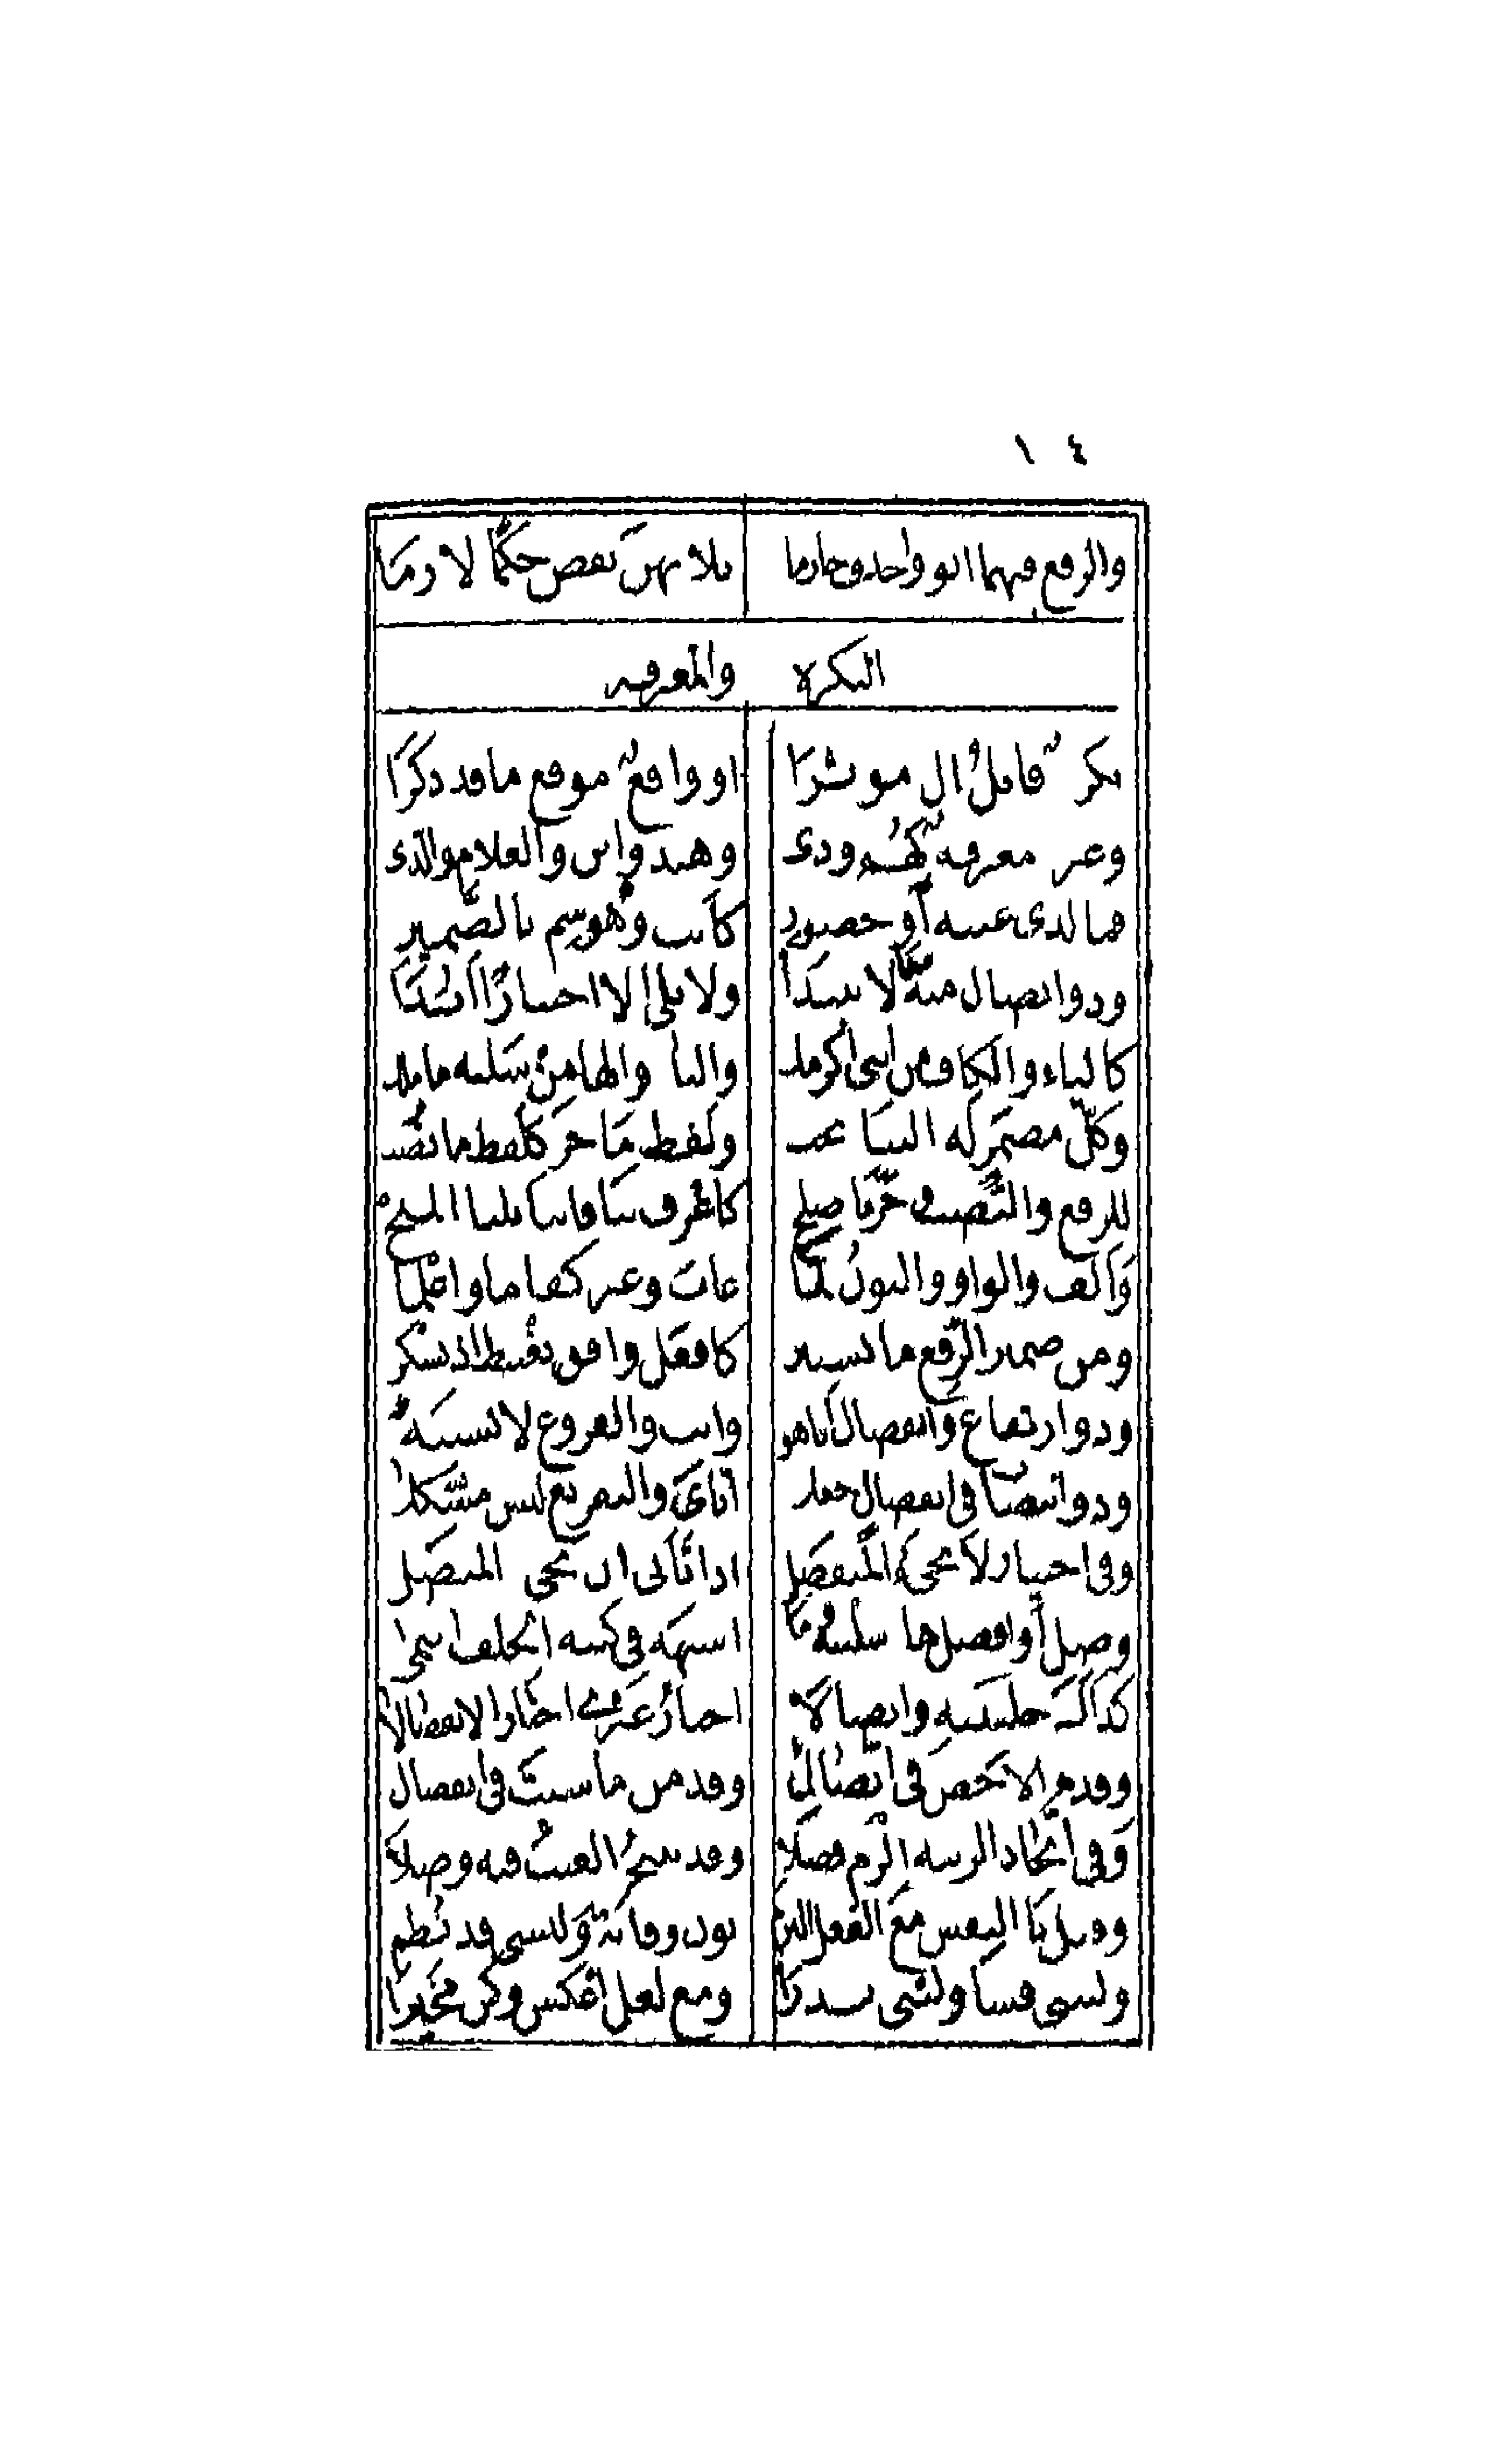 ١٤
والرفع فيهما انو واحذف جازما ثلاثهن تقض حكما لازما
النكرة والمعرفه
نكرة قابل ال موثرا او واقع موقع ما قد ذكرا
وغيره معرفه كهم وذى وهند وابنى والغلام والذى
فما لذى غيبه أو حضور كانت وهو سم بالضمير
وذو اتصال منه ما لا يبتدا ولا يلى إلا اختيارا ابدا
كالياء والكاف من ابنى اكرمك واليا والها من سليه ما ملك
وكل مضمر له البنا يجب ولفظ ما جر كلفظ ما نصب
للرفع والنصب وجر نا صلح كاعرف بنا فاننا نلنا المنح
وألف والواو والنون لما غاب وغيره كقاما واعلما
ومن ضمير الرفع ما يستتر كافعل اوافق نغتبط اذ تشكر
وذو ارتفاع وانفصال انا هو وانت والفروع لا تشتبه
وذو انتصاب فى انفصال جعلا اياى والتفريع ليس مشكلا
وفى اختيار لا يجىء المنفصل اذا تأتى ان يجى المتصل
وصل أو افصل هاء سلنيه وما اشبهه فى كنته الخلف انتمى
كذاك خلتنيه واتصالا اختار غيرى اختار الانفصالا
وقدم الاخص فى اتصال وقدمن ما شيت فى انفصال
وفى اتحاد الرتبه الزم فصلا وقد يبيح الغيب فيه وصلا
وقبل يا النفس مع الفعل التزم نون وقاية وليسى قد نظم
وليتنى فشا وليتى ندرا ومع لعل اعكس وكن مخيرا